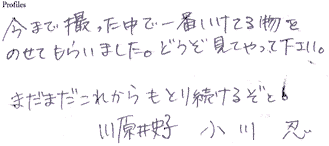 Profiles
今まで撮った中で一番いけてる物を
のせてもらいました。どうぞ見てやって下エい。
まだまだこれからもとり続けるぞと!
川原井好子 小川 忍